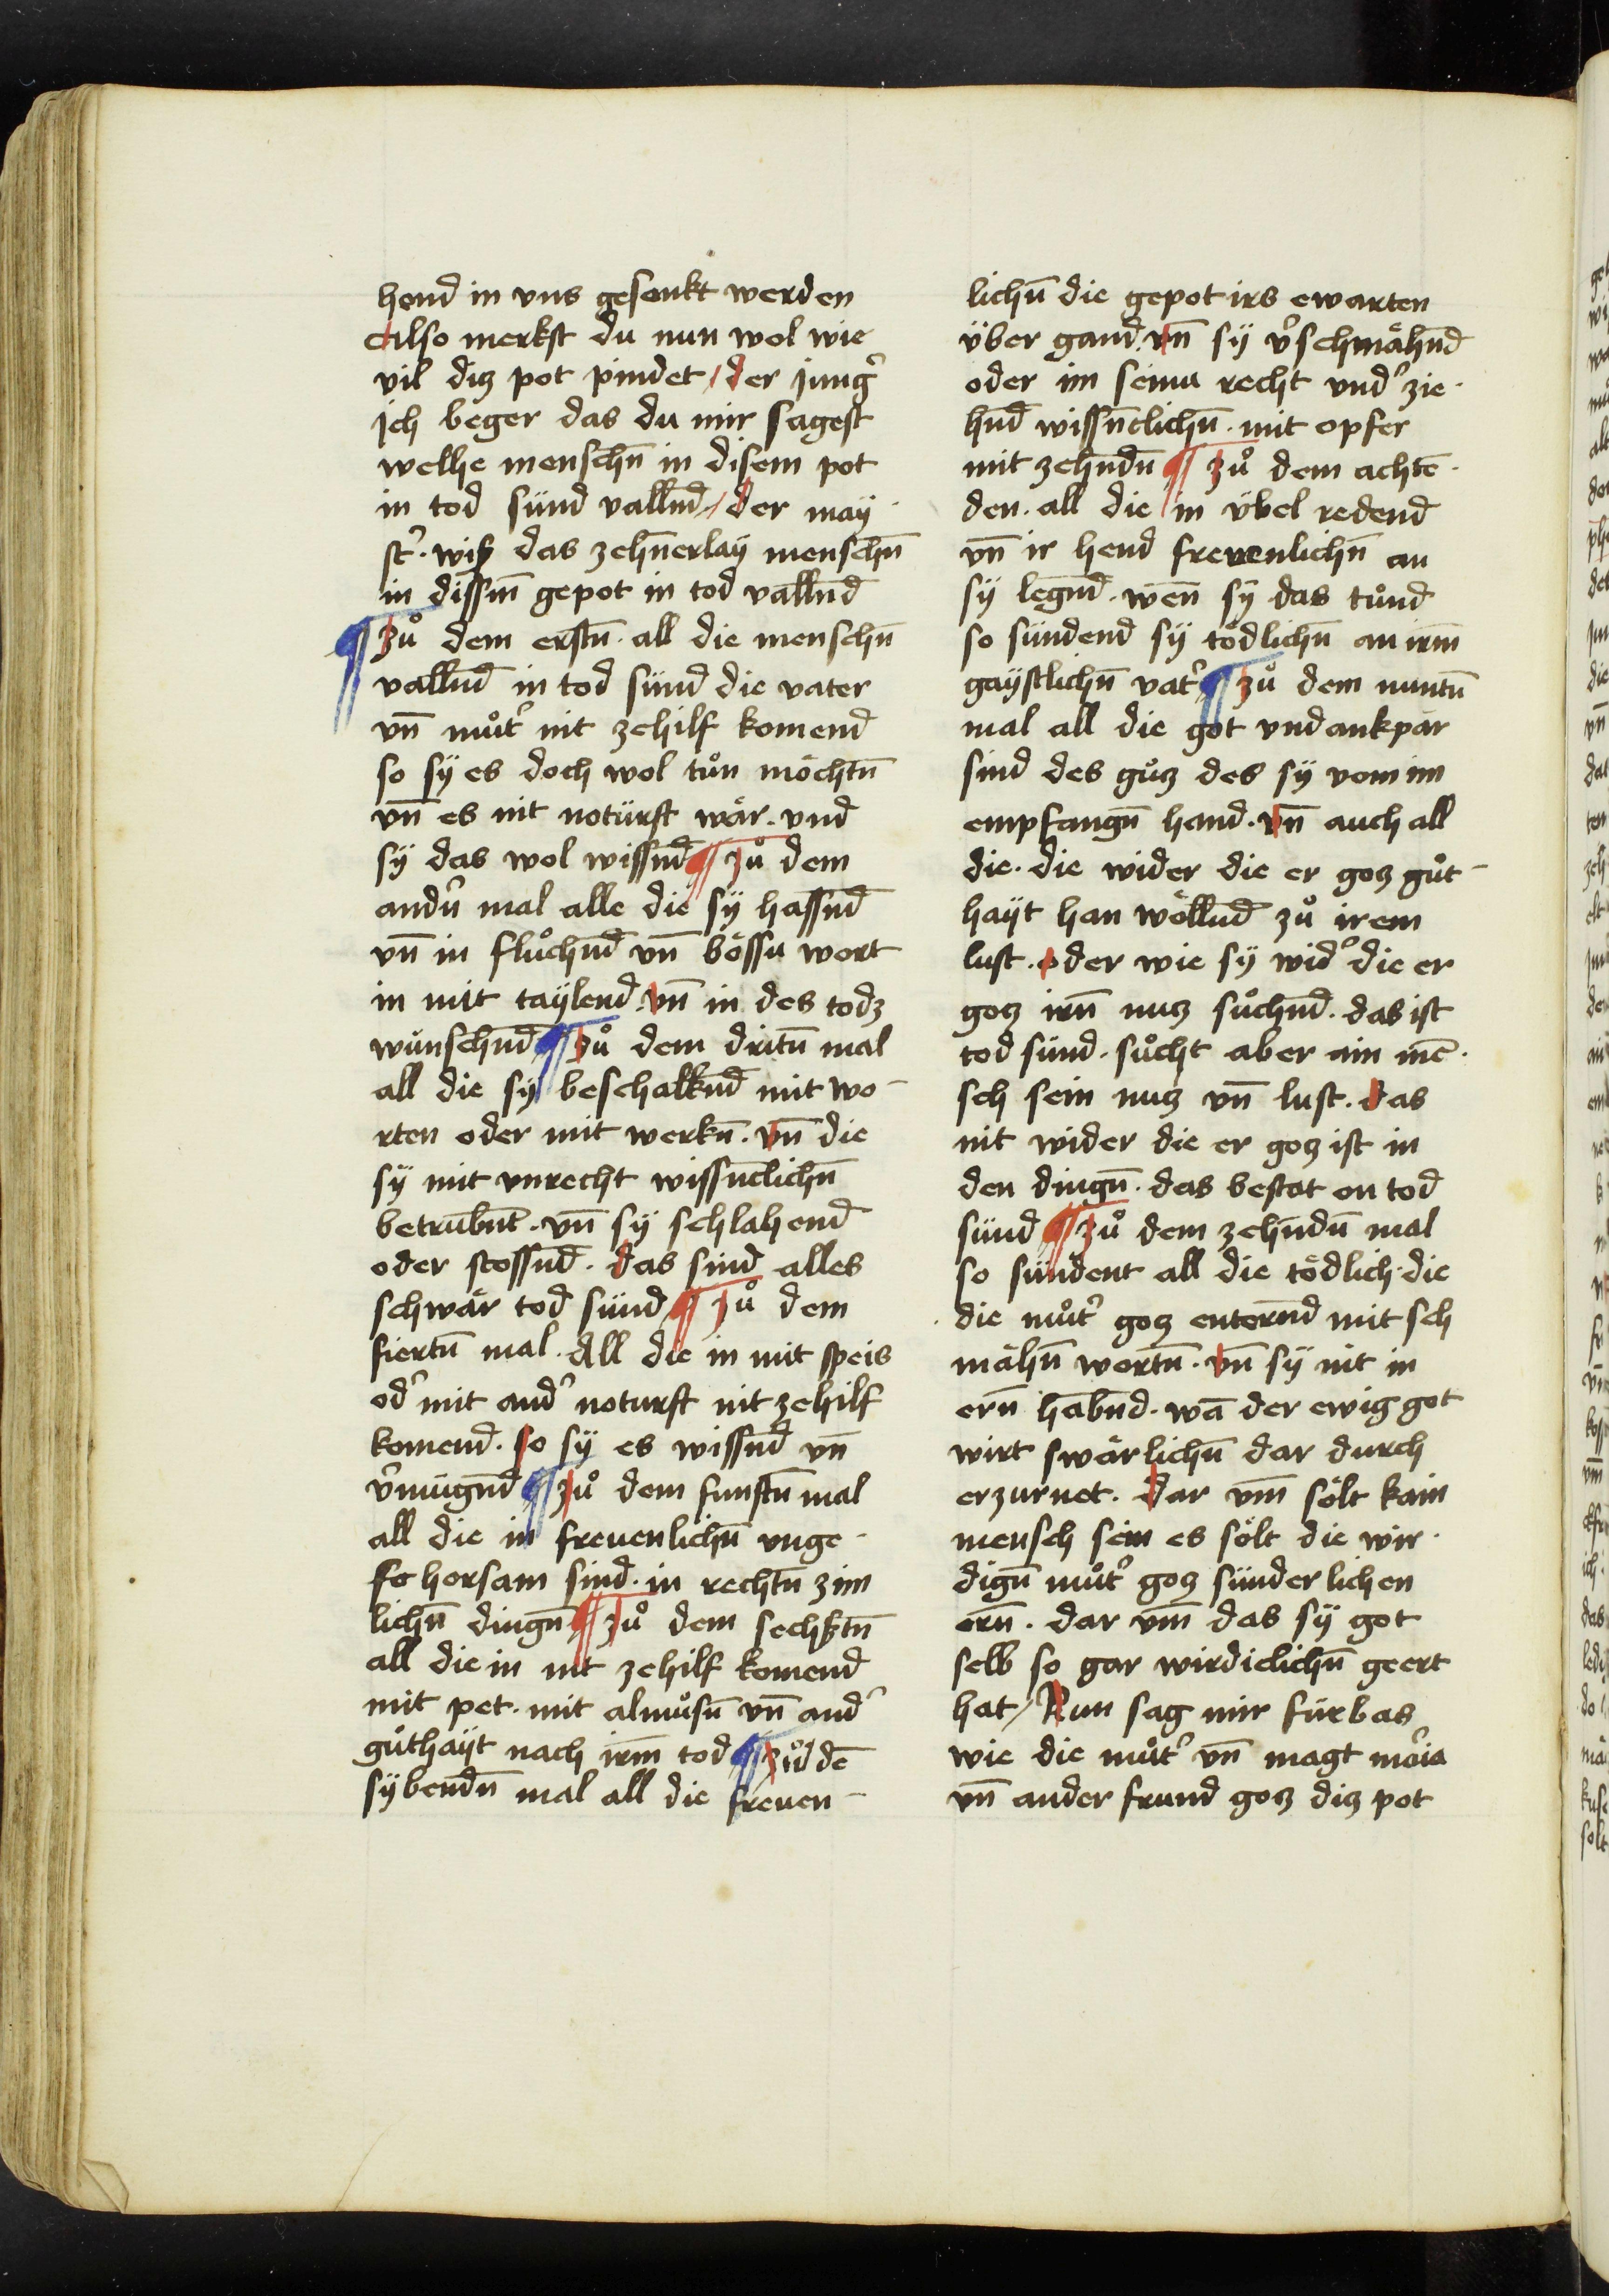 hend in vns gesenkt werden
Also merkst du nun wol wie
vil diz pot pindet / der jung᷑
jch beger das du mir sagest
welhe menschn̄ in disem pot
in tod sünd vallnd̄ / der may
st᷑ · wiß das zehn̄erlay menschn̄
in dissm̄ gepot in tod vallnd̄
¶ Zuͦ dem erstn̄ · all die menschn̄
vallnd̄ in tod sünd die vater
vn̄ muͦt᷑ nit zehilf komend
so sy es doch wol tuͦn möchtn̄
vn̄ es nit notürft wär · vnd
sy das wol wissnd̄ ¶ zuͦ dem
andn᷑ mal alle die sy hassnd̄
vn̄ in fluͦchnd̄ vn̄ bössu wort
in mit taylend · vn̄ in des todz
wünschnd̄ ¶ zuͦ dem dritn̄ mal
all die sy beschalknd̄ mit wo-
rten oder mit werkn̄ · vn̄ die
sy mit vnrecht wissn̄clichn̄
betrübnt̄ · vn̄ sy schlahend
oder stossnd̄ · das sind alles
schwär tod sünd ¶ zuͦ dem
fiertn̄ mal · All die in mit speis
od᷑ mit and᷑ noturft nit zehilf
komend · so sy es wissnd̄ vn̄
v᷑mügnd̄ ¶ zuͦ dem funftn̄ mal
all die in freuenlichn̄ vnge-
horsam sind · in rechtn̄ zim
lichn̄ dingn̄ ¶ zuͦ dem sechßtn̄
all die in nit zehilf komend
mit pet · mit almuͦsn̄ vn̄ and᷑
guͦthayt nach irm̄ tod ¶ zuͦ dē
sybendn̄ mal all die freuen-
lichn̄ die gepot irs ewarten
über gand · vn̄ sy v᷑schmähnd̄
oder im seinu recht vnd᷑ zie-
hnd̄ wissn̄clichn̄ · mit opfer
mit zehn̄dn̄ ¶ zuͦ dem achtē-
den · all die in übel redend
vn̄ ir hend frevenlichn̄ an
sy legnd̄ · wen̄ sy das tuͦnd
so sündend sy tödlichn̄ an irm̄
gaystlichn̄ vat᷑ ¶ zuͦ dem nuntn̄
mal all die got vndankpär
sind des guͦz des sy vom im
empfangn̄ hand · vn̄ auch all
die · die wider die er goz guͦt-
hayt han wöllnd̄ zuͦ irem
lust · oder wie sy wid᷑ die er
goz irn̄ nuz suͦchnd̄ · das ist
tod sünd · suͦcht aber ain mē-
sch sein nuz vn̄ lust · das
nit wider die er goz ist in
den dingn̄ · das bestat on tod
sünd ¶ zuͦ dem zehn̄dn̄ mal
so sündent all die tödlich · die
die muͦt᷑ goz enternd̄ mit sch
mähn̄ wortn̄ · vn̄ sy nit in
ern̄ habnd̄ · wā der ewig got
wirt swärlichn̄ dar durch
erzurnet · dar vm̄ sölt kain
mensch sein es sölt die wir-
dign̄ muͦt᷑ goz sünderlichen
ern̄ · dar vm̄ das sy got
selb so gar wirdiclichn̄ geert
hat / Nun sag mir fürbas
wie die muͦt᷑ vn̄ magt m᷑ia
vn̄ ander frund goz diz pot